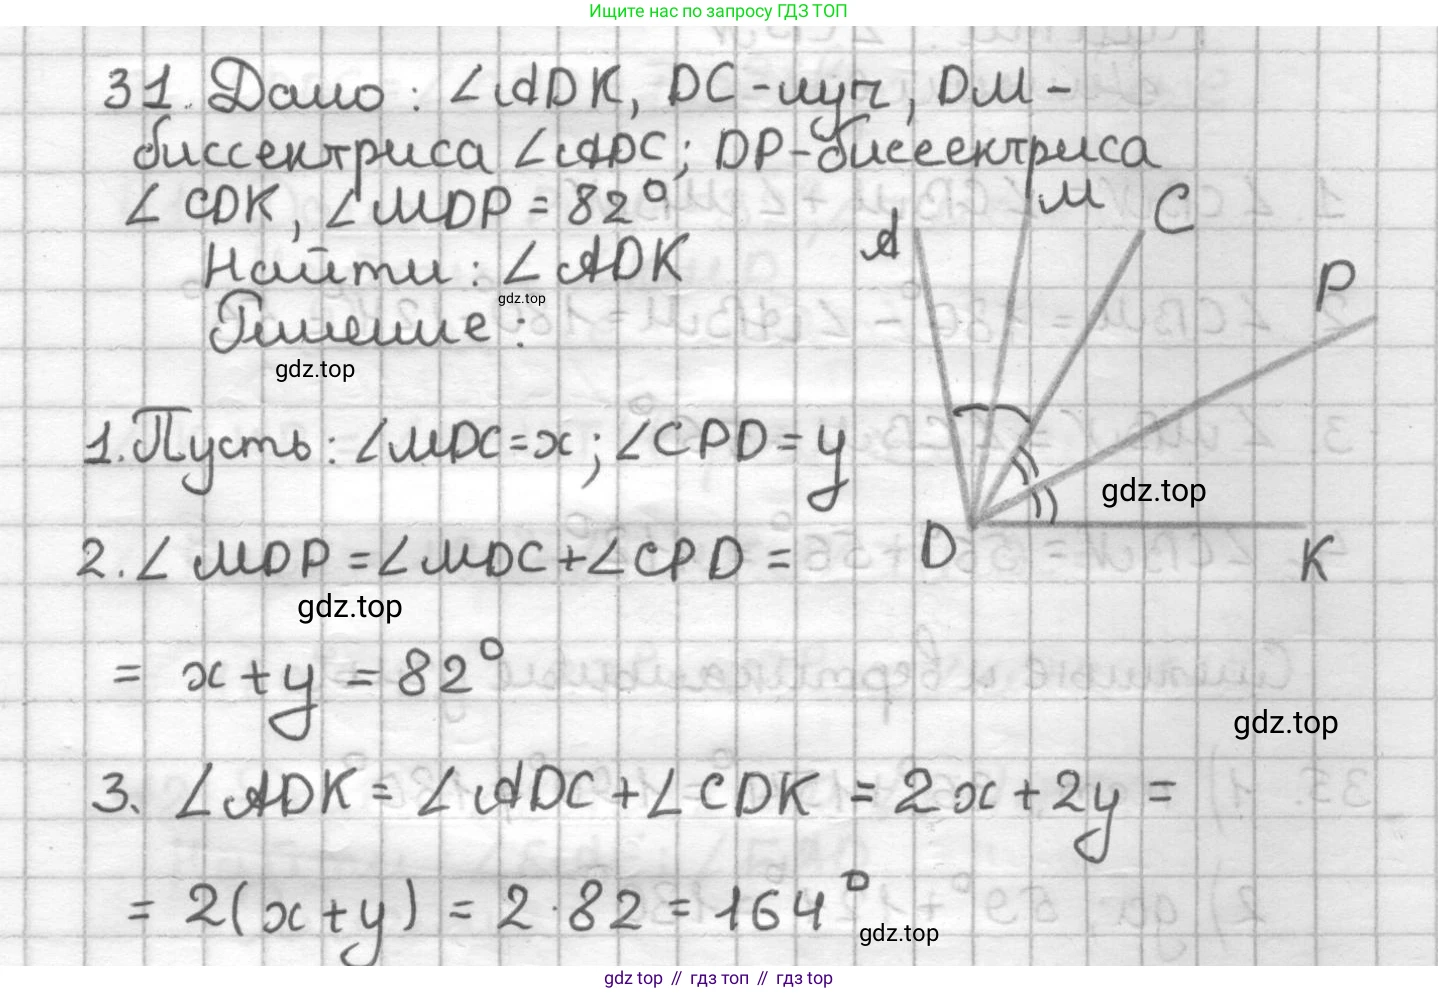 Ищите нас по запросу ГДЗ ТОП
31. Дано: ∠ADK, DC - луч, DM -
биссектриса ∠ADC; DP - биссектриса
∠CDK, ∠MDP = 82°
Найти: ∠ADK
gdz.top
Решение:
gdz.top
A
M
C
P
D
K
gdz.top
1. Пусть: ∠MDC = x; ∠CPD = y
2. ∠MDP = ∠MDC + ∠CPD =
gdz.top
= x + y = 82°
gdz.top
3. ∠ADK = ∠ADC + ∠CDK = 2x + 2y =
= 2(x + y) = 2 · 82 = 164°
gdz.top
gdz top // гдз топ // гдз top